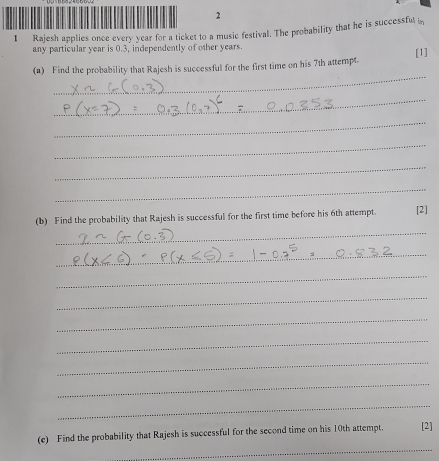 2
1 Rajesh applies once every year for a ticket to a music festival. The probability that he is successful in
any particular year is 0.3, independently of other years.
(a) Find the probability that Rajesh is successful for the first time on his 7th attempt. [1]
X ~ G(0.3)
P(X=7) = 0.3(0.7)^6 = 0.0353
(b) Find the probability that Rajesh is successful for the first time before his 6th attempt. [2]
X ~ G(0.3)
P(X<6) = P(X≤5) = 1-0.7^5 = 0.832
(c) Find the probability that Rajesh is successful for the second time on his 10th attempt. [2]